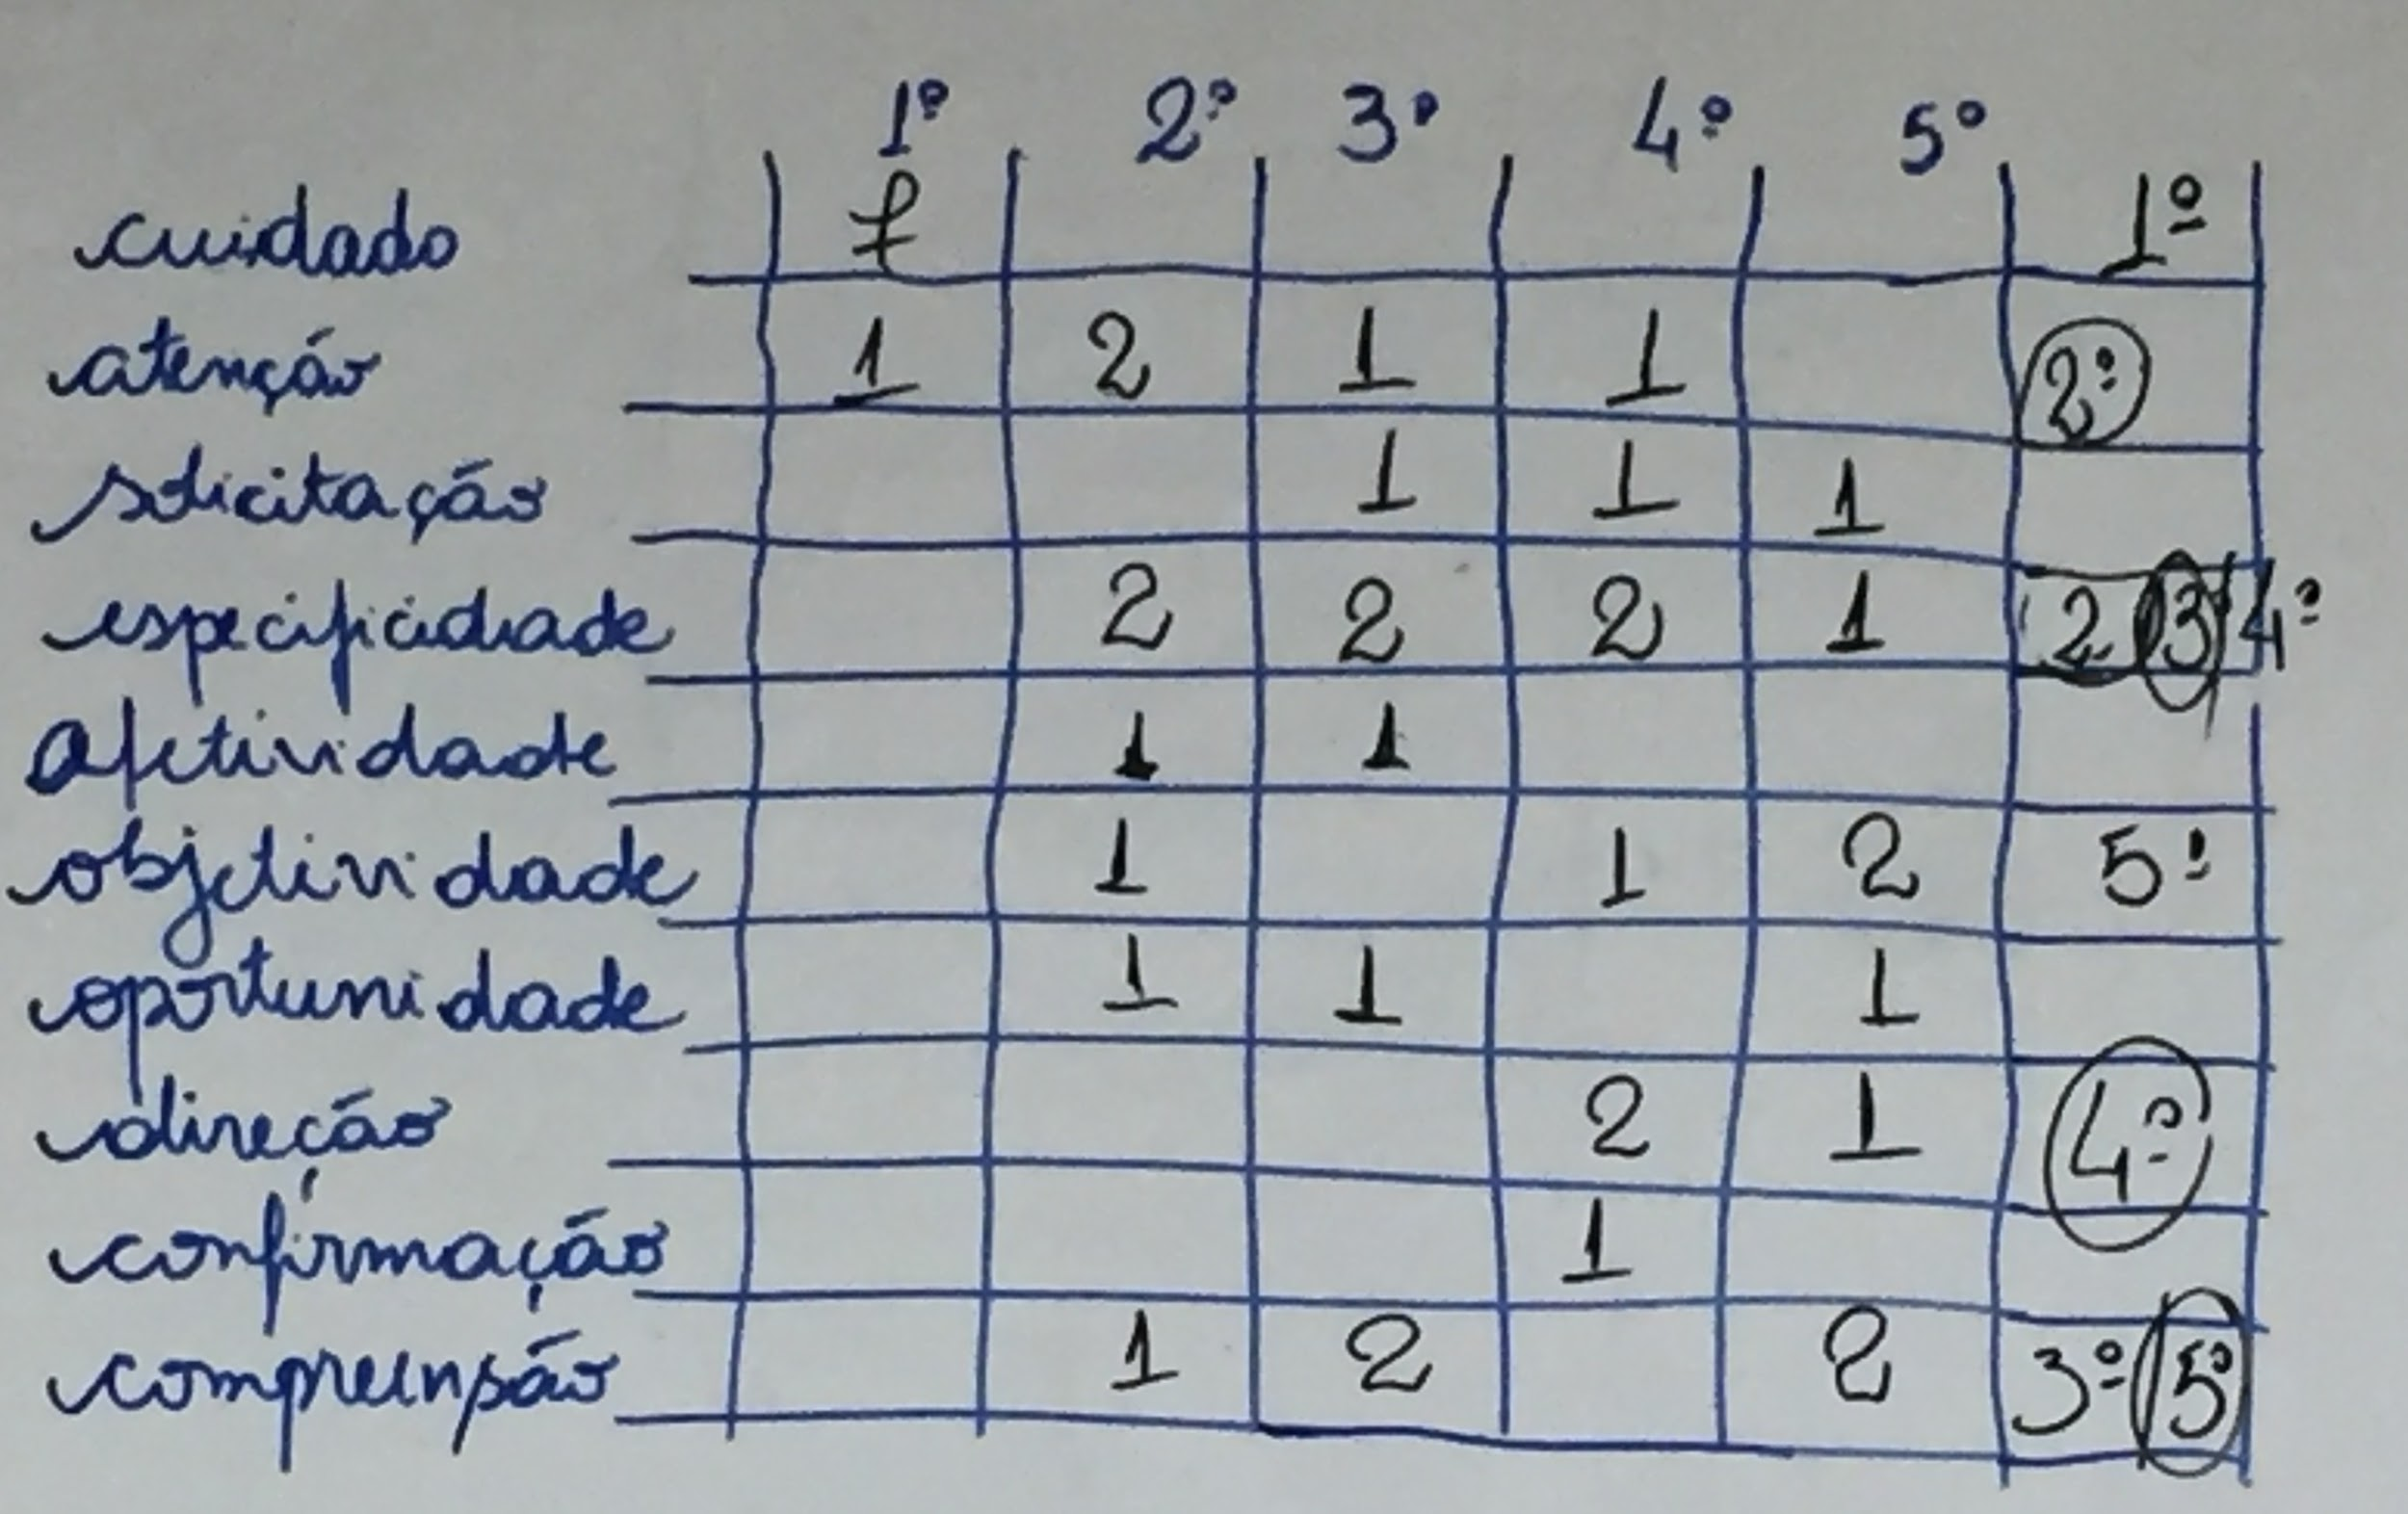 1º 2º 3º 4º 5º
cuidado 7 1º
atenção 1 2 1 1 2º
solicitação 1 1 1
especificidade 2 2 2 1 2 3 4º
afetividade 1 1
objetividade 1 1 2 5º
oportunidade 1 1 1
direção 2 1 4º
confirmação 1
compreensão 1 2 2 3º 5º